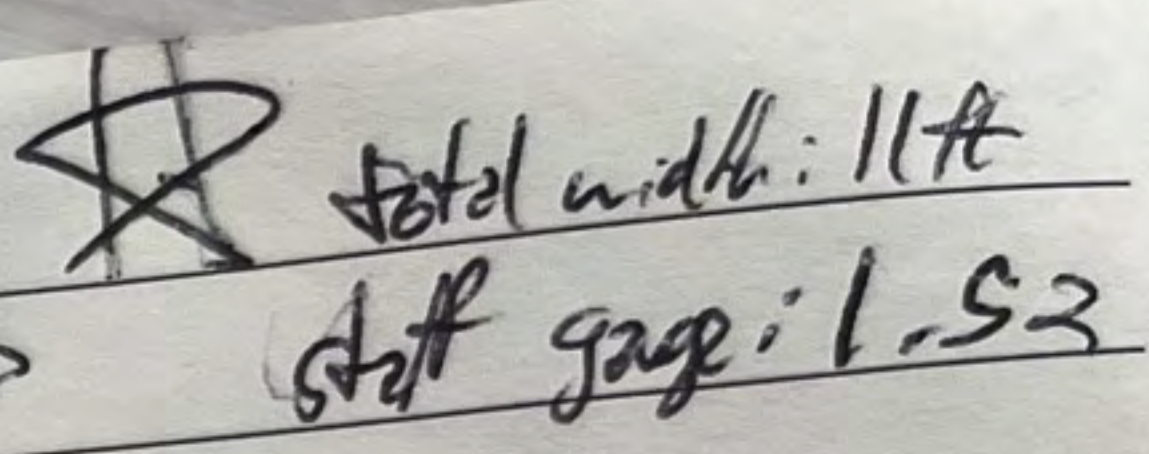 total width: 11ft
staff gauge: 1.52